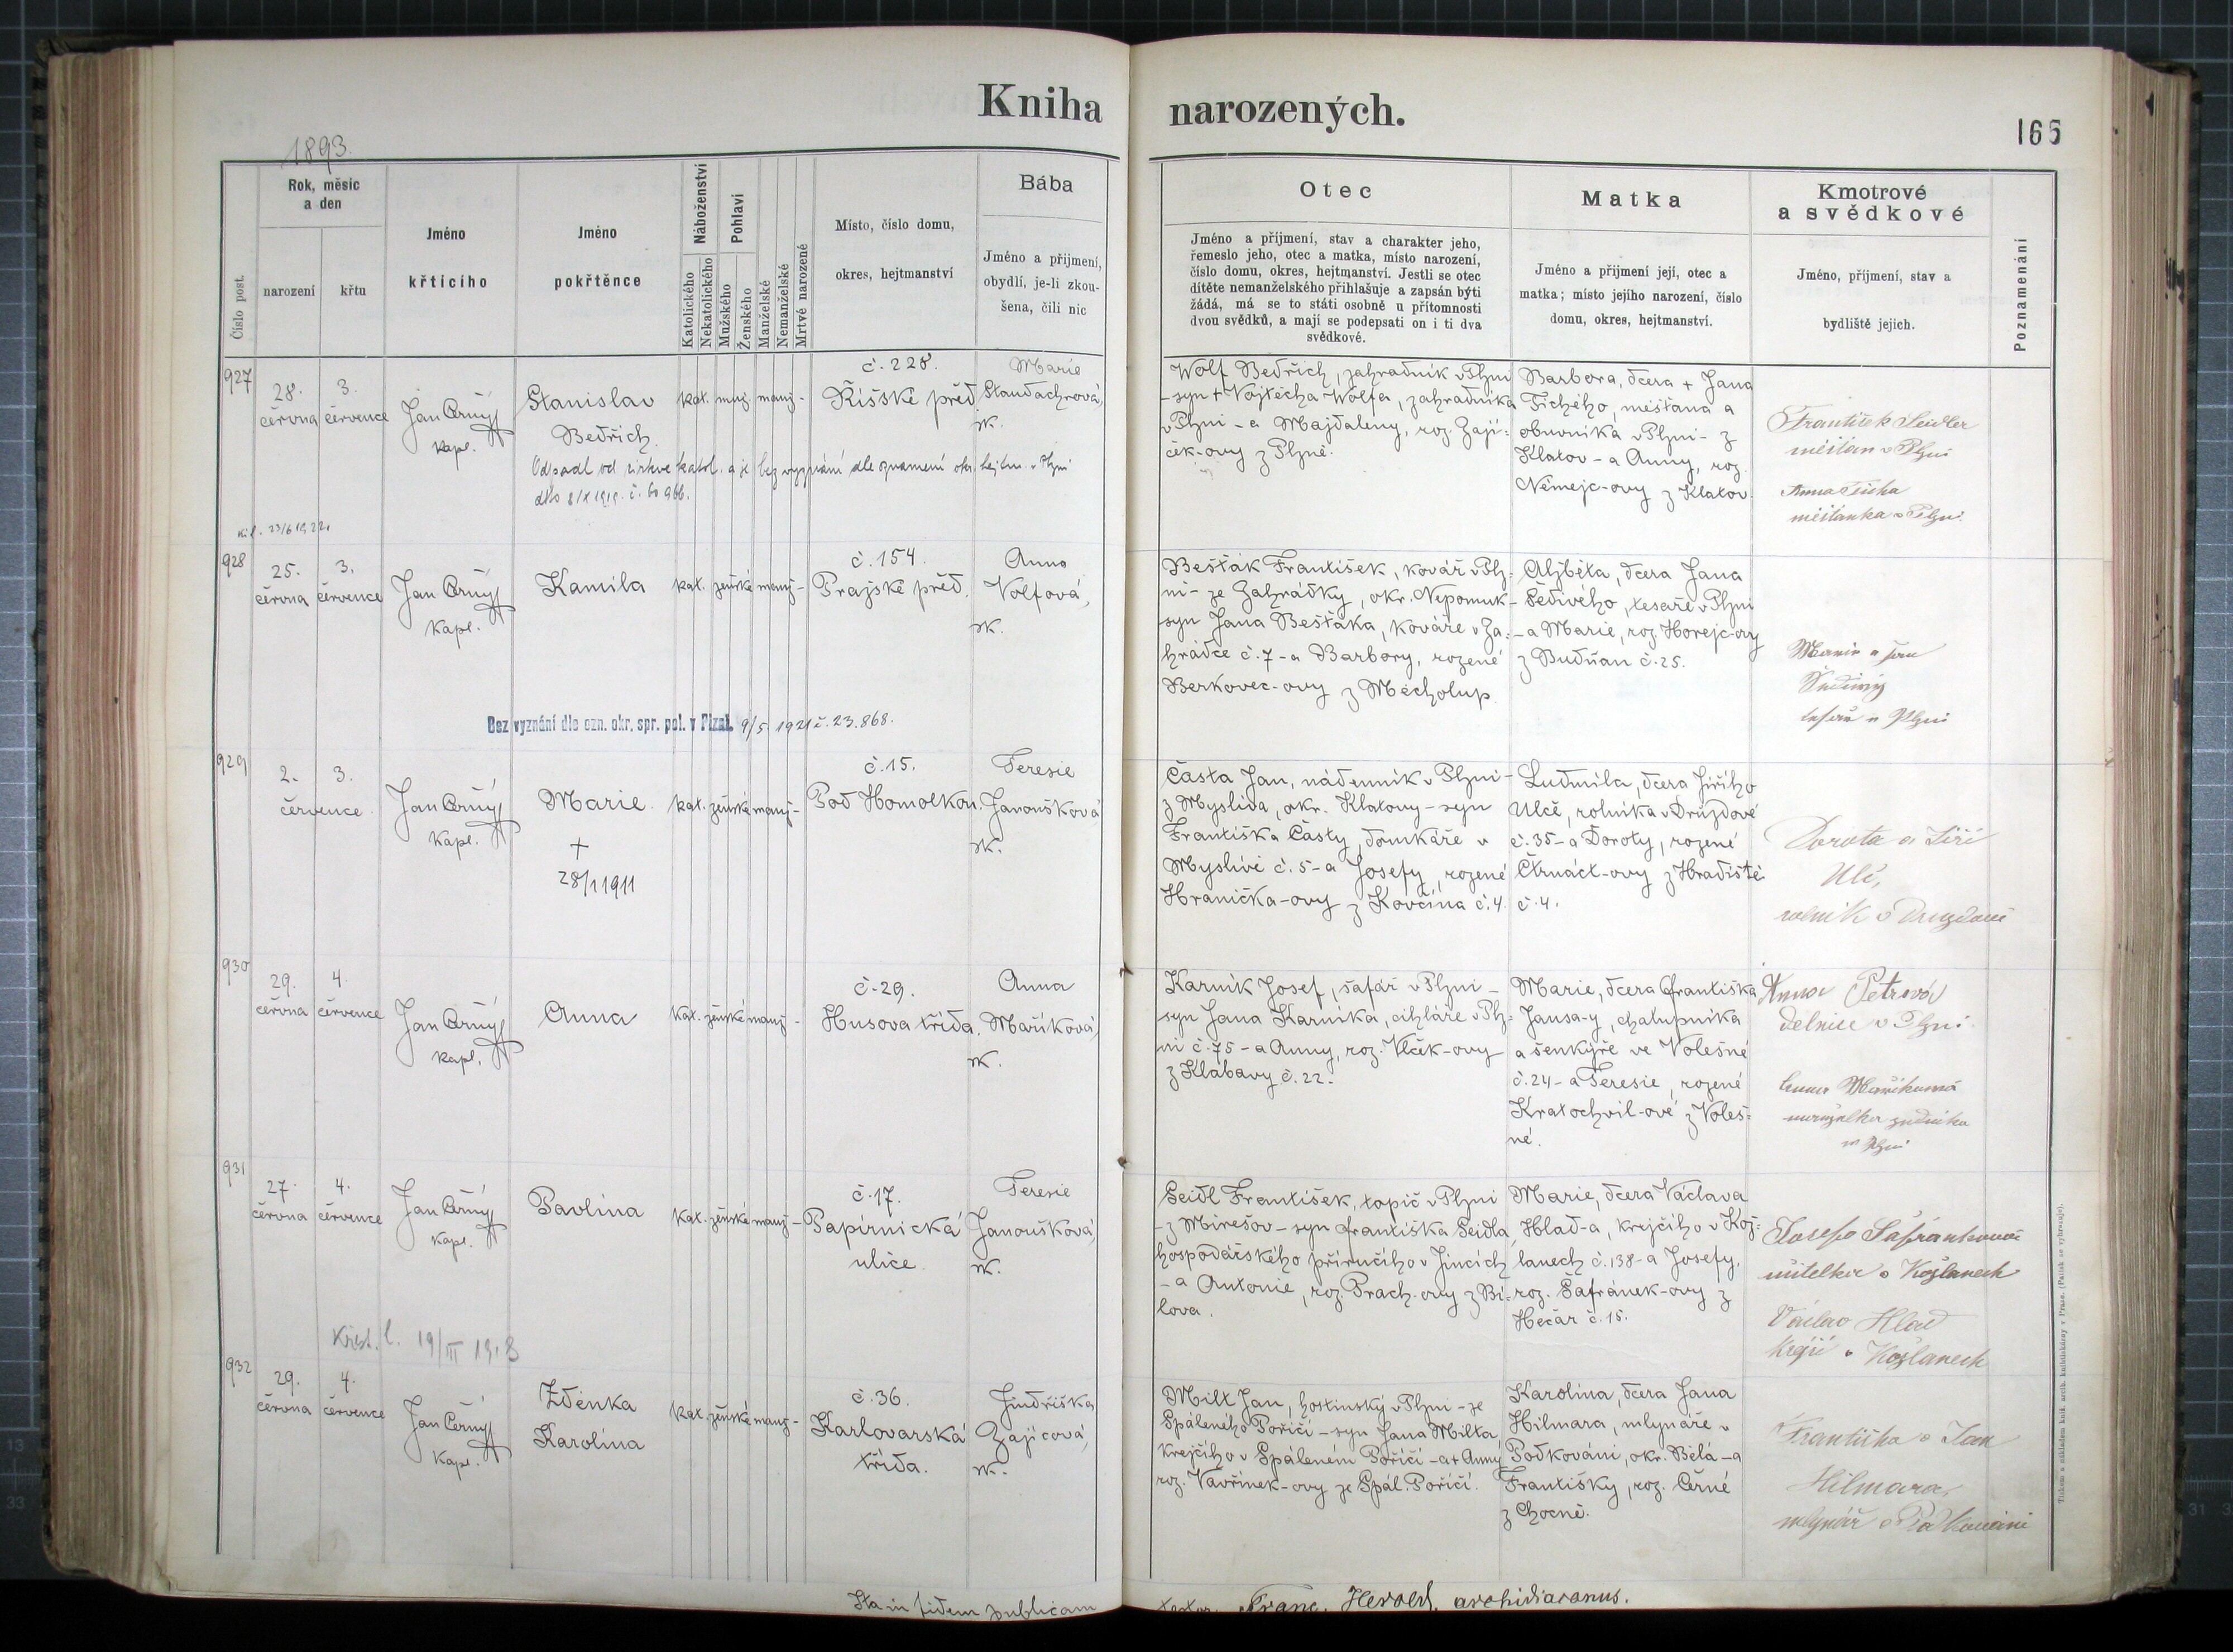 Kniha narozených.
165
1893.
Číslo post.
Rok, měsíc
a den
narození
křtu
Jméno
křtícího
Jméno
pokřtěnce
Náboženství
Katolického
Nekatolického
Pohlaví
Mužského
Ženského
Manželské
Nemanželské
Mrtvě narozené
Místo, číslo domu,
okres, hejtmanství
Bába
Jméno a příjmení,
obydlí, je-li zkou-
šena, čili nic
Otec
Jméno a příjmení, stav a charakter jeho,
řemeslo jeho, otec a matka, místo narození,
číslo domu, okres, hejtmanství. Jestli se otec
dítěte nemanželského přihlašuje a zapsán býti
žádá, má se to státi osobně u přítomnosti
dvou svědků, a mají se podepsati on i ti dva
svědkové.
Matka
Jméno a příjmení její, otec a
matka; místo jejího narození, číslo
domu, okres, hejtmanství.
Kmotrové
a svědkové
Jméno, příjmení, stav a
bydliště jejich.
Poznamenání
927
28.
června
3.
července
Jan Černý
kapl.
Stanislav
Bedřich.
kat. muž. manž. -
č. 228.
Říšské před.
Marie
Staudachrová,
zk.
Odpadl od církve katol. a je bez vyznání dle oznámení okr. hejtm. v Plzni
dto 8/X 1919. č. 60966.
23/6 1922.
Wolf Bedřich, zahradník v Plzni
- syn + Vojtěcha Wolfa, zahradníka
v Plzni - a Majdaleny, roz. Zají=
ček-ovy z Plzně.
Barbora, dcera + Jana
Tichého, měšťana a
obuvníka v Plzni - z
Klatov - a Anny, roz.
Němejc-ovy z Klatov.
František Seidler
měšťan v Plzni
Anna Tichá
měšťanka v Plzni.
928
25.
června
3.
července
Jan Černý
kapl.
Kamila
kat. ženské manž. -
č. 154.
Pražské před.
Anna
Volfová,
zk.
Bez vyznání dle ozn. okr. spr. pol. v Plzni. 9/5. 1921 č. 23.868.
Bešťák František, kovář v Plz=
ni - ze Zahrádky, okr. Nepomuk -
syn Jana Bešťáka, kováře v Za=
hrádce č. 7 - a Barbory, rozené
Berkovec-ovy z Měcholup
Alžběta, dcera Jana
Šedivého, tesaře v Plzni
- a Marie, roz. Horejc-ovy
z Budňan č. 25.
Marie a Jan
Šedivý
tesař v Plzni
929
2.
3.
července
Jan Černý
kapl.
Marie
+
28/1 1911
kat. ženské manž. -
č. 15.
Pod Homolkou.
Teresie
Janoušková,
zk.
Časta Jan, nádenník v Plzni -
z Myslíva, okr. Klatovy - syn
Františka Časty, domkáře v
Myslívě č. 5 - a Josefy, rozené
Hranička-ovy z Kovčína č. 4.
Ludmila, dcera Jiřího
Ulče, rolníka v Druzdové
č. 35 - a Doroty, rozené
Čtrnáct-ovy z Hradiště
č. 4.
Dorota a Jiří
Ulč,
rolník v Druzdové
930
29.
června
4.
července
Jan Černý
kapl.
Anna
kat. ženské manž. -
č. 29.
Husova třída.
Anna
Maříková,
zk.
Karník Josef, šafář v Plzni -
syn Jana Karníka, cihláře v Plz=
ni č. 75 - a Anny, roz. Vlček-ovy
z Klabavy č. 22.
Marie, dcera Františka
Jansa-y, chalupníka
a šenkýře ve Volešné
č. 24 - a Teresie, rozené
Kratochvil-ové z Voleš=
né.
Anna Petrová
dělnice v Plzni
Anna Maříková
manželka zedníka
v Plzni
931
27.
června
4.
července
Jan Černý
kapl.
Pavlína
kat. ženské manž. -
č. 17.
Papírnická
ulice.
Teresie
Janoušková,
zk.
Křest. l. 19/III
Seidl František, topič v Plzni
- z Mirešov - syn Františka Seidla,
hospodářského příručího v Jincích
- a Antonie, roz. Prach-ovy z Bí=
lova.
Marie, dcera Václava
Hlad-a, krejčího v Kož=
lanech č. 138 - a Josefy,
roz. Šafránek-ovy z
Hečar č. 15.
Josefa Šafránková
učitelka v Kožlanech
Václav Hlad
krejčí v Kožlanech
932
29.
června
4.
července
Jan Černý
kapl.
Zdenka
Karolína
kat. ženské manž. -
č. 36.
Karlovarská
třída.
Jindřiška
Zajícová,
zk.
Milt Jan, hostinský v Plzni - ze
Spáleného Poříčí - syn Jana Milta,
krejčího v Spáleném Poříčí - a + Anny,
roz. Vavřínek-ovy ze Spál. Poříčí.
Karolína, dcera Jana
Hilmara, mlynáře v
Podkováni, okr. Bělá - a
Františky, roz. Černé
z Chocně.
Františka a Jan
Hilmara,
mlynář v Podkováni
Ita in fidem publicam
testor. Franc. Herold, archidiaconus.